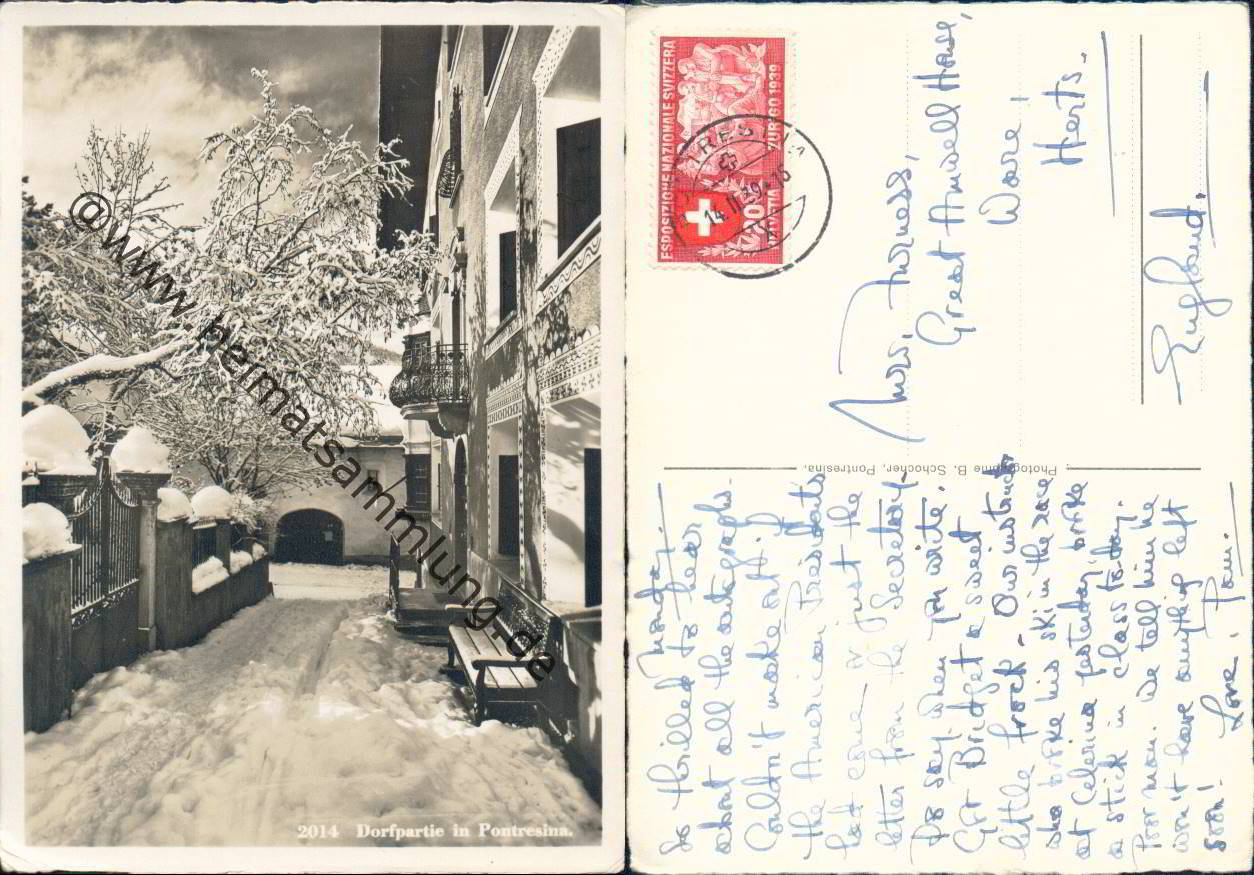 2014 Dorfpartie in Pontresina.
©www.heimatsammlung.de
ESPOSIZIONE NAZIONALE SVIZZERA
ZURIGO 1939
HELVETIA
14. II. 39
Photographie B. Schocher, Pontresina.
So thrilled to hear
about all the autographs.
Couldn't make out if
the American President's
had come or just the
letter from the Secretary.
Do say when you write.
Got Bridget a sweet
little frock - Our instructor
who broke his ski in the race
at Celerina yesterday, broke
a stick in class to-day.
Poor man. We tell him he
won't have anything left
soon! Love, Pom.
Mrs. Furness,
Great Amwell House,
Ware,
Herts.
England.